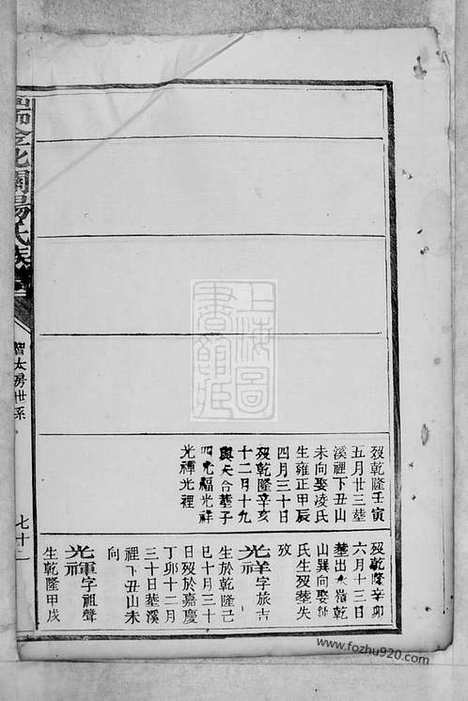 瑞金北關楊氏族
智太房世系
七十二
歿乾隆壬寅
五月廿三塟
溪裡下丑山
未向娶凌氏
生雍正甲辰
四月三十日
歿乾隆辛亥
十二月十九
與夫合塟子
四光福光祥
光禪光裡
歿乾隆辛卯
六月十三日
塟出水嶺乾
山巽向娶鍾
氏生歿塟失
攷
光祥字旅吉
生於乾隆己
巳十月三十
日歿於嘉慶
丁卯十二月
三十日塟溪
裡下丑山未
向
光禪字祖聲
生乾隆甲戌
上海圖書館藏
www.fozhu920.com